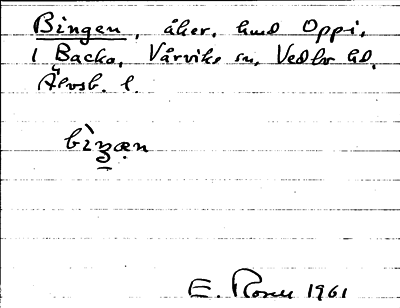 Bingen, åker, hmd Oppi,
1 Backa, Vårviks sn, Vedbo hd,
Älvsb. l.
bìŋæn
E. Rosen 1961